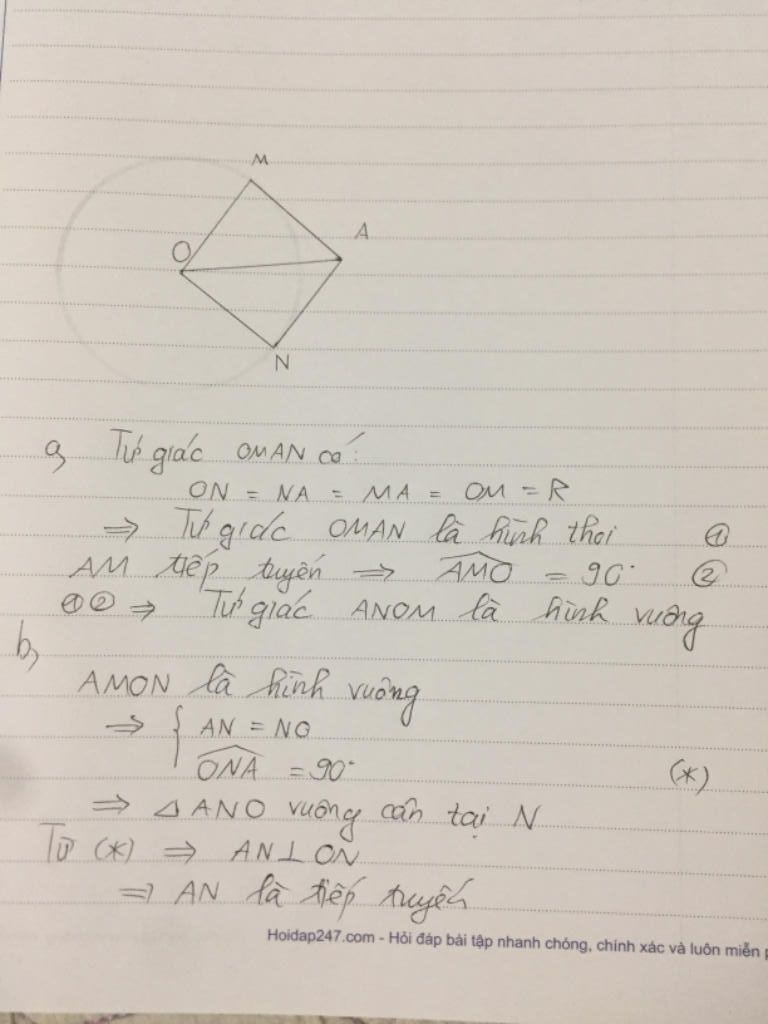 M
A
O
N
a, Tứ giác OMAN có:
ON = NA = MA = OM = R
⇒ Tứ giác OMAN là hình thoi ①
AM tiếp tuyến ⇒ \widehat{AMO} = 90° ②
①② ⇒ Tứ giác ANOM là hình vuông
b,
AMON là hình vuông
⇒ { AN = NO
\widehat{ONA} = 90° (*)
⇒ △ANO vuông cân tại N
Từ (*) ⇒ AN ⊥ ON
⇒ AN là tiếp tuyến
Hoidap247.com - Hỏi đáp bài tập nhanh chóng, chính xác và luôn miễn p